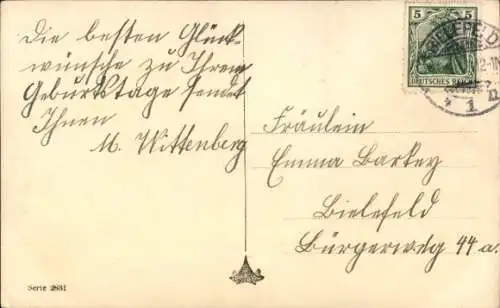 Die besten Glück-
wünsche zu Ihrem
Geburtstage sendet
Ihnen
M. Wittenberg
5 5
DEUTSCHES REICH
BIELEFELD
1
Fräulein
Emma Barkey
Bielefeld
Bürgerweg 44 a.
Serie 2831